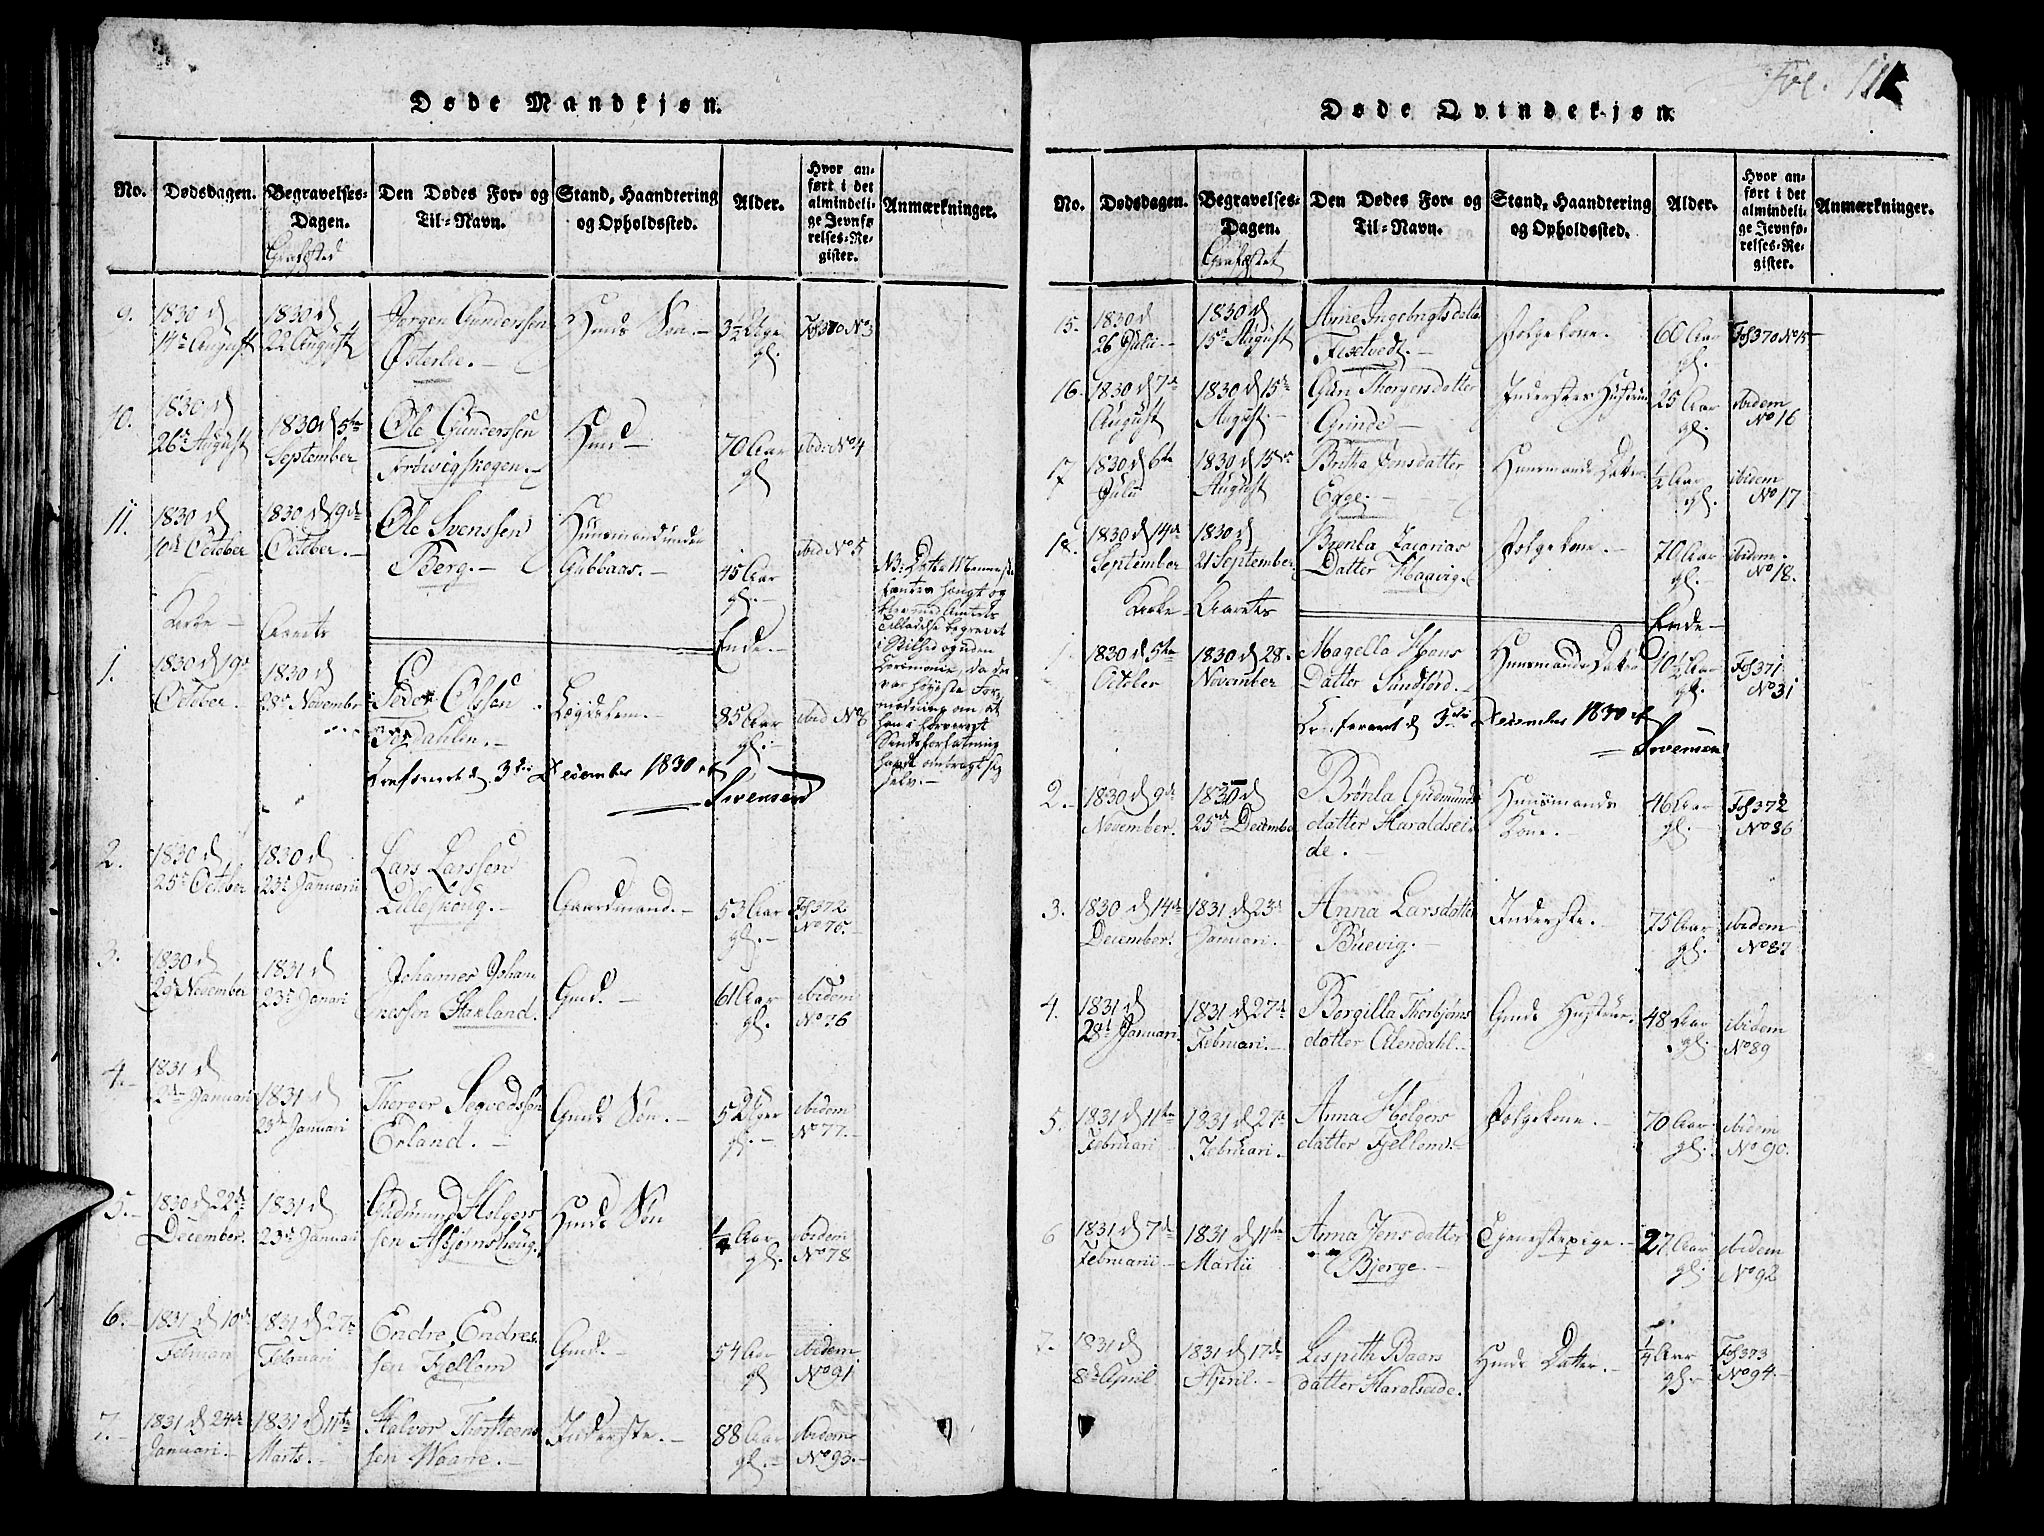 Døde Mandkjøn.
No.
Dødsdagen.
Begravelses-
Dagen.
Den Dødes For- og
Til-Navn.
Stand, Haandtering
og Opholdssted.
Alder.
Hvor an-
ført i det
almindeli-
ge Jevnfø
relses-Re-
gister.
Anmærkninger.
9.
1830 d
14de August
1830 d
22 August
Jørgen Gunderssen
Østerlie.
Huus Søn.
3½ Uge
gl.
Fol 370 No 3
10.
1830 d
26de August
1830 d 5te
September
Ole Gunderssen
Huusd
70 Aar
gl
ibid: No 4
11.
1830 d
10de October
1830 d
October.
Ole Svenssen
Berg.
Huusmand under
Gabbaas.
45 Aar
gl.
ibid No 5
NB: Dette Menneske
hængt og
blev med Amtets
Tilladelse begravet
i Stilhed og uden
Ceremonie, da der
var høyeste For-
modning om at
han i forvirret
Sindsforfatning
havde ombragt sig
selv.
Kirke - Aarets
Ende.
1.
1830 d 19de
October.
1830 d
28de November
Peder Olssen
Lægdslem.
85 Aar
gl.
ibid No 6
Conforeret d 3die December 1830 af
Svensen
2.
1830 d
25de October
1830 d
23de Januarii
Lars Larssen
Lilleskoug.
Gaardmand.
53 Aar
gl.
Fol 372
No 75.
3.
1830 d
29de November
1831 d
23de Januari
Johannes Johan
nessen Stakland.
Gmd.
61 Aar
gl.
ibidem
No 76
4.
1831 d
2den Januari
1831 d
23de Januari
Thorger Segvedssøn
Erland.
Gmds Søn.
5 Uger
gl.
ibidem
No 77.
5.
1830 d 22de
December.
1831 d
23de Januari
Gudmund Helgers
sen Asbjørnshoug.
Huusds Søn
¼ Aar
gl.
ibidem
No 78
6.
1831 d 10de
Februari
1831 d 27de
Februari
Endre Endres
sen Fjellom
Gmd.
54 Aar
gl
ibidem
No 91
7.
1831 d 24de
Januari.
1831 d 11te
Marts.
Halvor Thorsteens
sen Waarre.
Inderste.
88 Aar
gl.
ibidem
No 93.
Fol. 111
Døde Qvindekjøn
No.
Dødsdagen.
Begravelses-
Dagen.
Den Dødes For- og
Til-Navn.
Stand, Haandtering
og Opholdssted.
Alder.
Hvor an-
ført i det
almindeli-
ge Jevnfø-
relses-Re-
gister.
Anmærkninger.
15.
1830 d
26 Julii
1830 d
15de August
Arne Ingebrigtsdatter
Fisetvedt.
Folgekone.
60 Aar
gl.
Fol 370 No 15
16.
1830 d 7de
August
1830 d 15de
August.
Guri Thorgersdatter
Grinde
Inderstes Hustrue
25 Aar
gl.
ibidem
No 16
17
1830 d 6te
Julii
1830 d 15de
August
Britha Jensdatter
Ege.
Huusmands Datter
½ Aar
gl.
ibidem
No 17
18.
1830 d 14de
September
1830 d
21 September
Brønla Zacarias
Datter Haavig.
Folgekone.
70 Aar
gl.
ibidem.
No 18.
Kirke - Aarets
Ende
1.
1830 d 5te
October
1830 d 28.
November
Magella Hans
Datter Sundførd.
Huusmands Datter
10½ Aar
gl.
Fol 371
No 31
Conforeret d 3die December 1830 af
Svensen
2.
1830 d 9de
November.
1830 d
25de December
Brønla Gudmunds
datter Haraldsei
de.
Huusmands
Kone.
46 Aar
gl.
Fol 372
No 86
3.
1830 d 14de
December.
1831 d 23de
Januari.
Anna Larsdatter
Buevig.
Inderste.
75 Aar
gl.
ibidem
No 87
4.
1831 d
28de Januari.
1831 d 27de
Februari.
Borgilla Thorbjørns
datter Odendahl.
Gmds Hustrue.
48 Aar
gl.
ibidem
No 89
5.
1831 d 11te
Februari
1831 d 27de
Februari.
Anna Helgers
datter Fjellom.
Folgekone.
70 Aar
gl.
ibidem
No 90.
6
1831 d 7de
Februarii
1831 d 11te
Martii
Anna Jens datter
Bjerge.
Tjenestepige.
27 Aar
gl.
ibidem
No 92
7.
1831 d
8de April
1831 d 17de
April.
Lispeth Baars
datter Haralseide.
Huusds Datter.
¼ Aar
gl.
Fol 373
No 94.